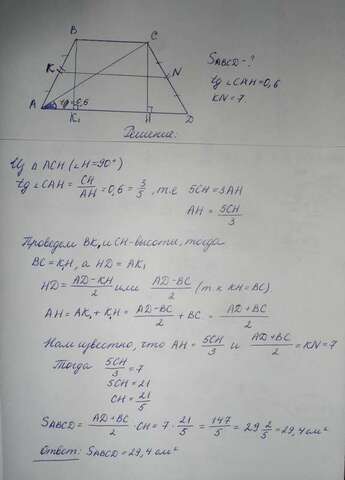 B C
K N
A tg=0,6 K₁ H D
SABCD - ?
tg∠CAH=0,6
KN=7.
Решение:
Из △ ACH (∠H=90°)
tg∠CAH = CH/AH = 0,6 = 3/5, т.е 5CH=3AH
AH = 5CH/3
Проведем BK₁ и CH-высоты, тогда
BC=K₁H, а HD=AK₁
HD = AD-KH/2 или AD-BC/2 (т.к KH=BC)
AH = AK₁ + K₁H = AD-BC/2 + BC = AD+BC/2
Нам известно, что AH = 5CH/3 и AD+BC/2 = KN=7
Тогда 5CH/3 = 7
5CH = 21
CH = 21/5
SABCD = AD+BC/2 · CH = 7 · 21/5 = 147/5 = 29 2/5 = 29,4 см²
Ответ: SABCD = 29,4 см²